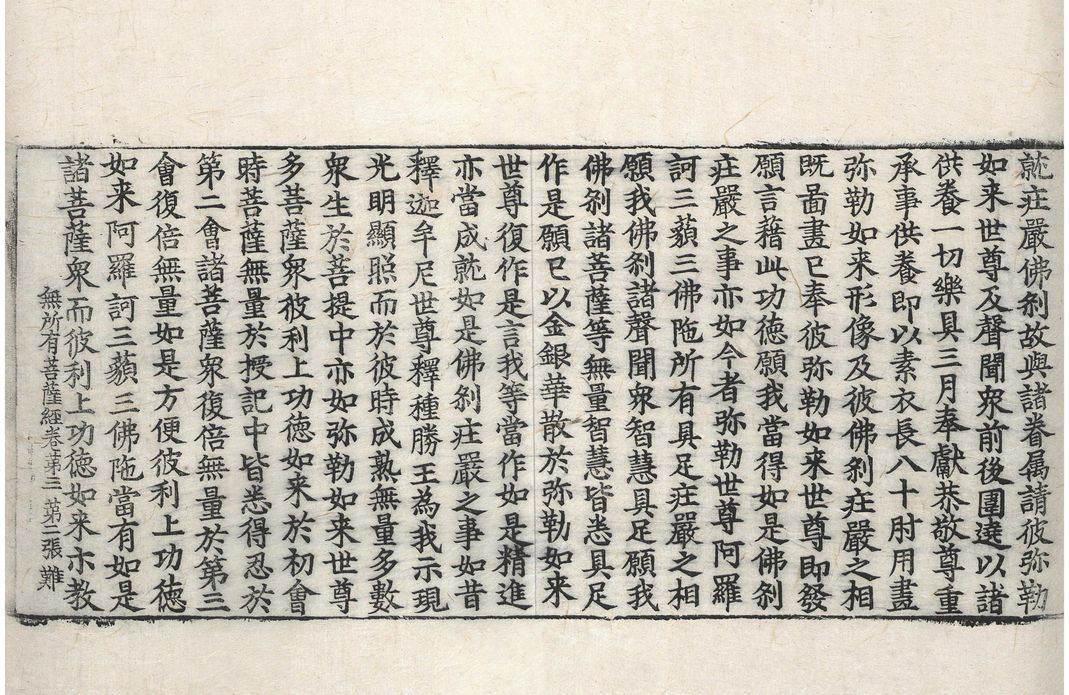 就庄嚴佛刹故與諸眷属請彼弥勒
如来世尊及聲聞衆前後圍遶以諸
供養一切樂具三月奉獻恭敬尊重
承事供養即以素衣長八十肘用畫
弥勒如来形像及彼佛刹庄嚴之相
既啚畫已奉彼弥勒如来世尊即發
願言藉此功徳願我當得如是佛刹
庄嚴之事亦如今者弥勒世尊阿羅
訶三藐三佛陁所有具足庄嚴之相
願我佛刹諸聲聞衆智慧具足願我
佛刹諸菩薩等無量智慧皆悉具足
作是願已以金銀華散於弥勒如来
世尊復作是言我等當作如是精進
亦當成就如是佛刹庄嚴之事如昔
釋迦牟尼世尊釋種勝王為我示現
光明顯照而於彼時成熟無量多數
衆生於菩提中亦如弥勒如来世尊
多菩薩衆彼利上功徳如来於初會
時菩薩無量於授記中皆悉得忍於
第二會諸菩薩衆復倍無量於第三
會復倍無量如是方便彼利上功徳
如来阿羅訶三藐三佛陁當有如是
諸菩薩衆而彼利上功徳如来亦教
無所有菩薩經卷第三 第二張 難